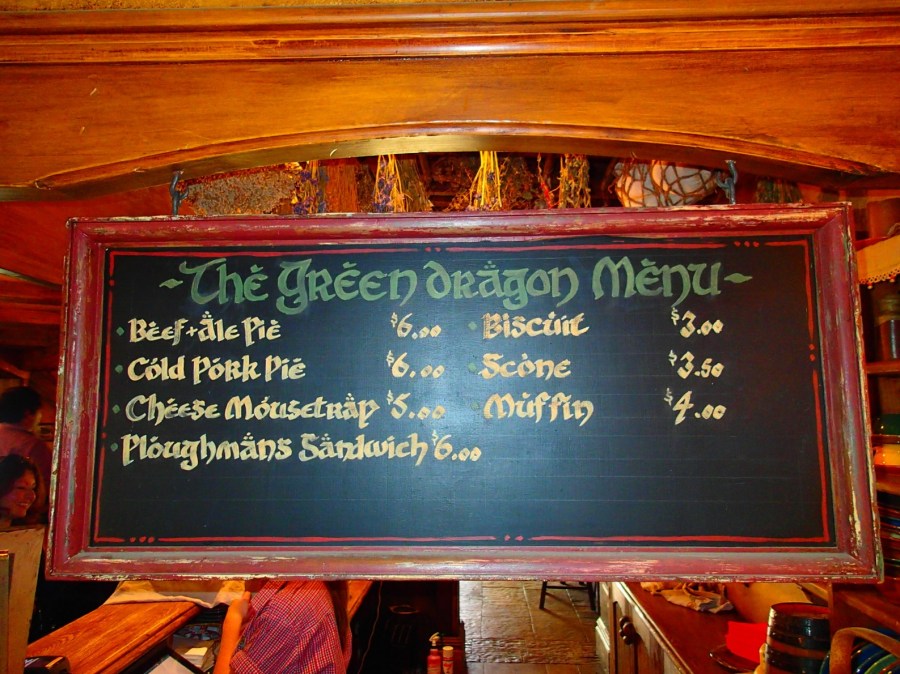 ~The Green Dragon Menu~
• Beef + Ale Pie $6.00
• Cold Pork Pie $6.00
• Cheese Mousetrap $5.00
• Ploughmans Sandwich $6.00
• Biscuit $3.00
• Scone $3.50
• Muffin $4.00